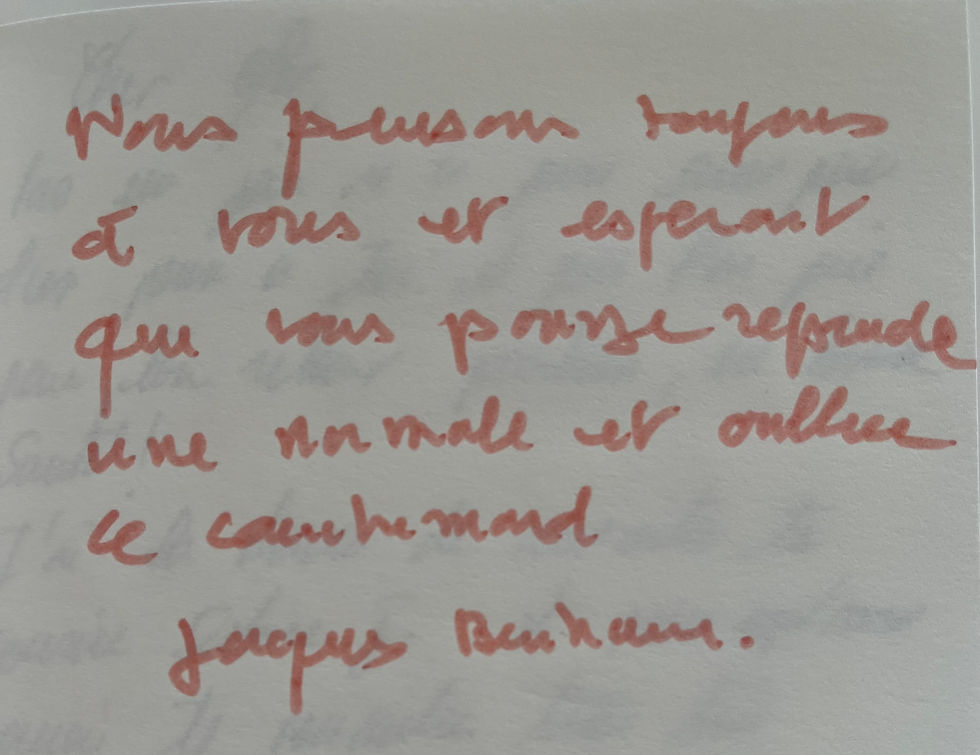 Nous pensons toujours
à vous et esperant
que vous pouvze reprende
une normale et oublier
ce cauchemard
Jacques Benhamu.